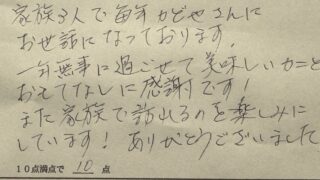 家族3人で毎年かどやさんに
お世話になっております。
一年無事に過ごせて美味しいカニと
おもてなしに感謝です!
また家族で訪れるのを楽しみに
しています! ありがとうございました
10点満点で 10 点